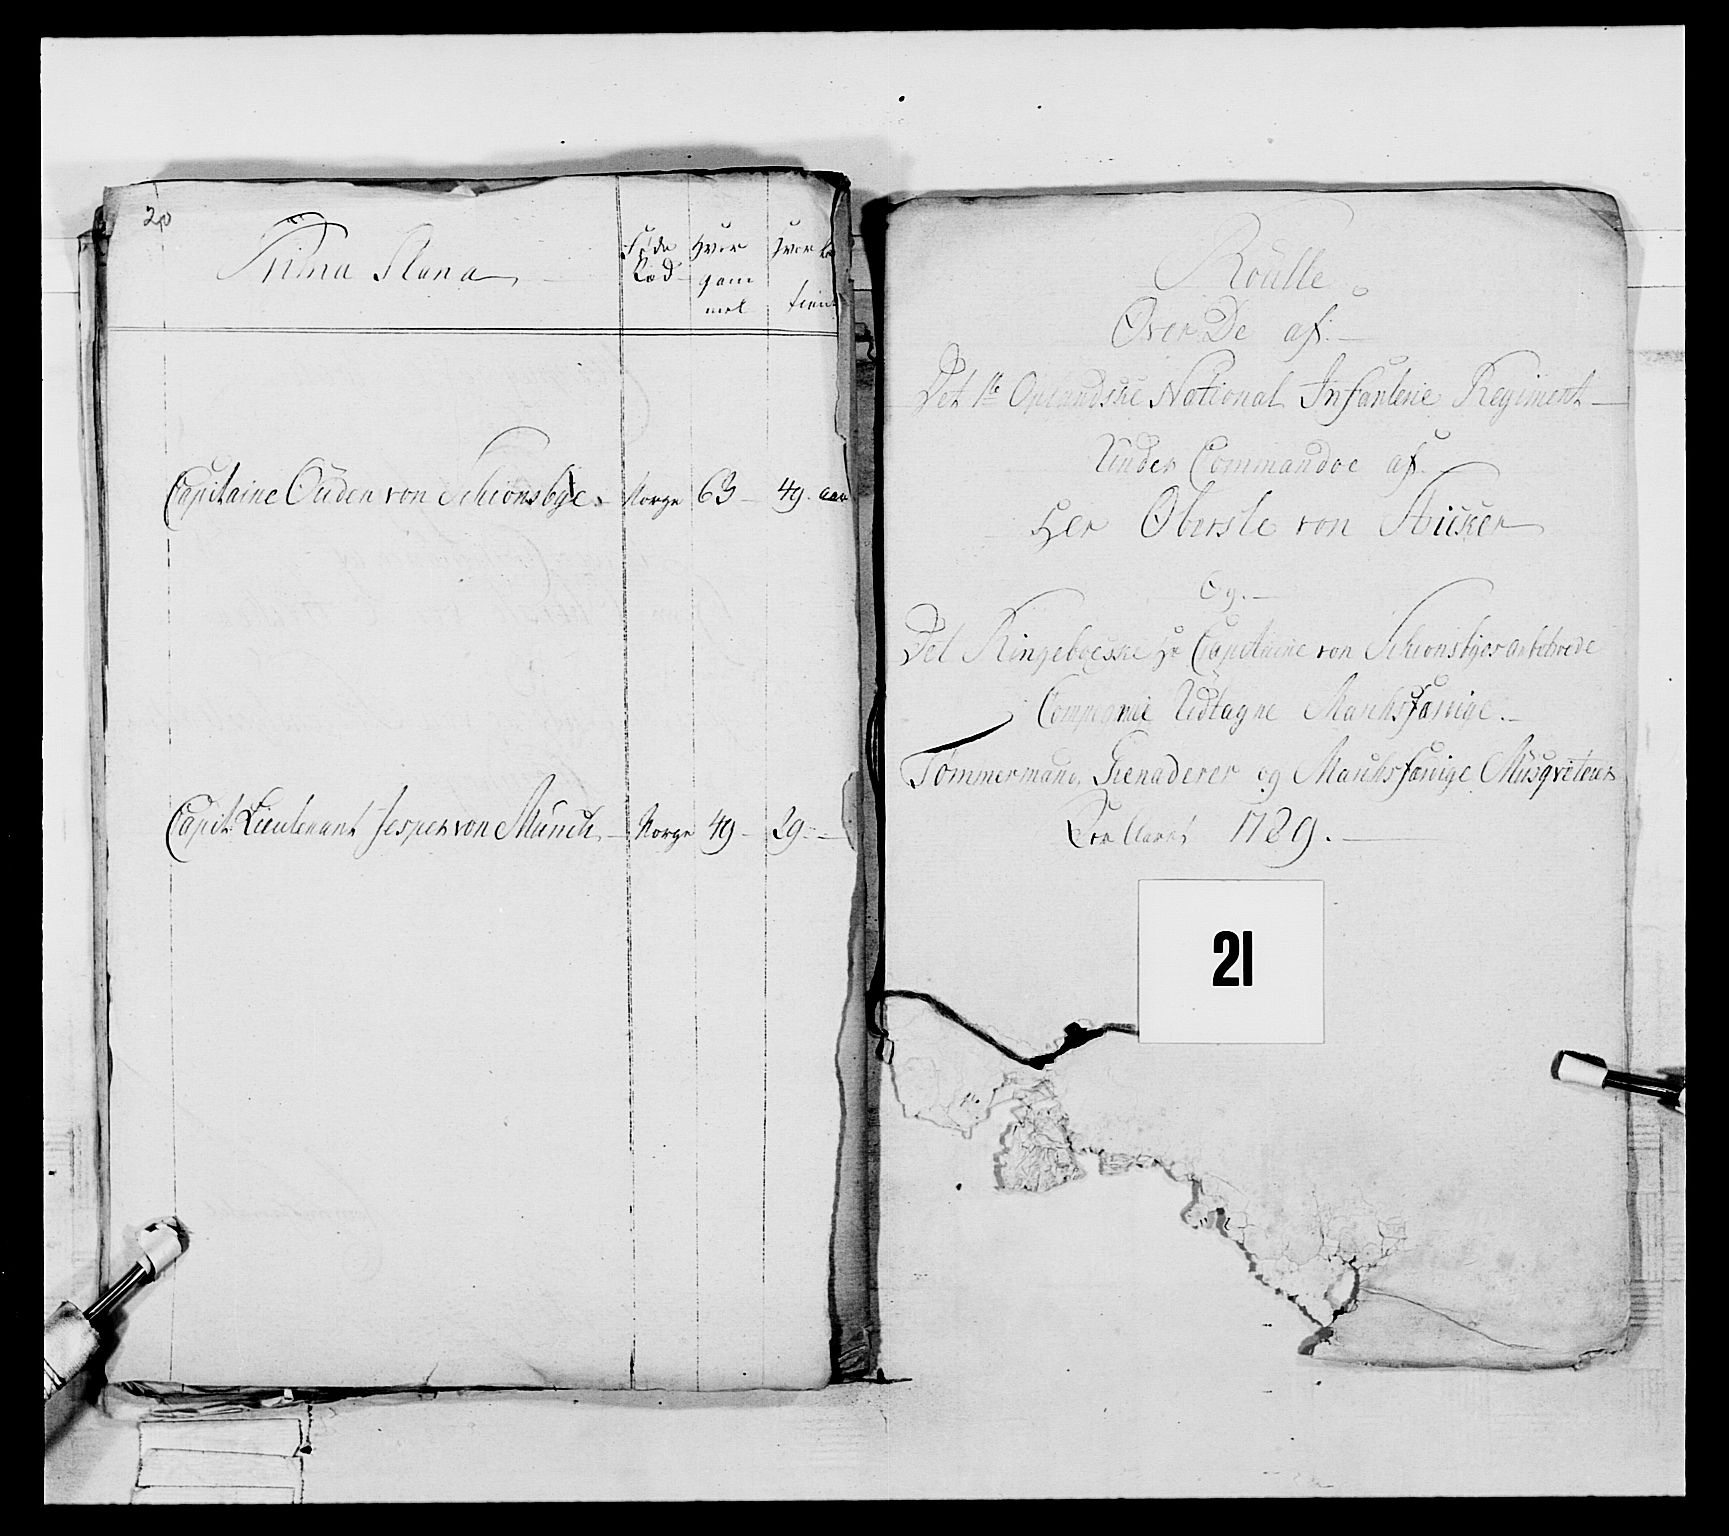 20
Prima Plana
Føde Hvor Hvor
Rød gam
mel tient
Capitaine Ouden von Schionsbye. Norge 63 49. aar
Capit: Lieutenant Jesper von Münch Norge 49 29.
Roulle
Over De af.
Det 1te Oplandske National Infanterie Regiment
Under Commandoe af.
Her Oberste von Stricker
Og.
Det Ringeboeske Hr Capitaine von Schionsbyes anbetroede
Compagnie Udtagne Marchsfærrige.
Tømmermand. Grenaderer og Marchsfærrige Musqveterer
For Aaret 1789.
21